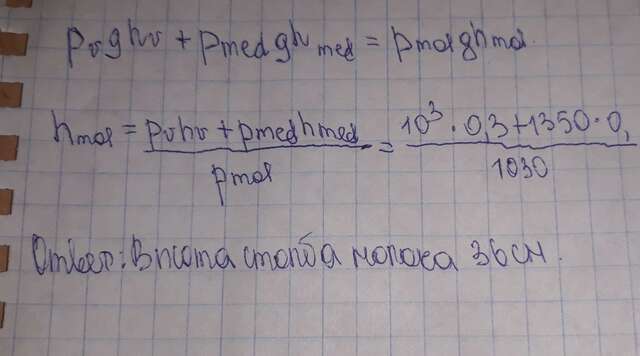 ρvghv + ρmedghmed = ρmolghmol.
hmol = ρvhv + ρmedhmed / ρmol = 10³ · 0,3 + 1350 · 0, / 1030
Ответ: Высота столба молока 36 см.